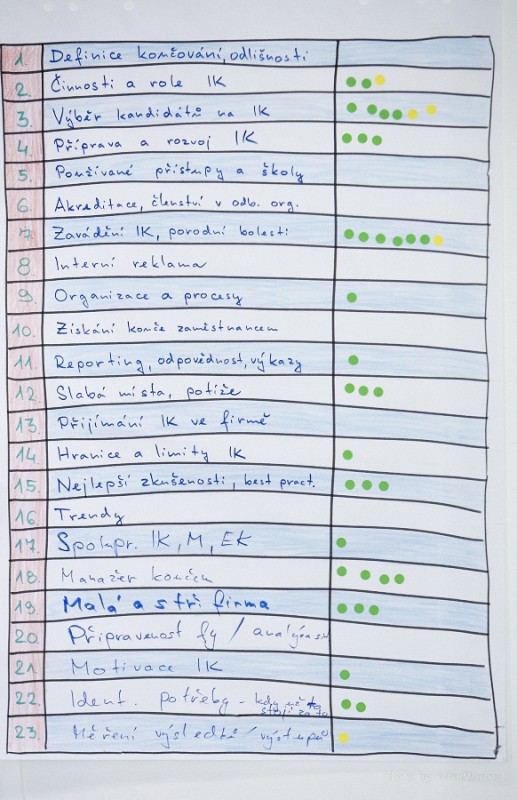 1. Definice koučování, odlišnosti
2. Činnosti a role IK
3. Výběr kandidátů na IK
4. Příprava a rozvoj IK
5. Používané přístupy a školy
6. Akreditace, členství v odb. org.
7. Zavádění IK, porodní bolesti
8. Interní reklama
9. Organizace a procesy
10. Získání kouče zaměstnancem
11. Reporting, odpovědnost, výkazy
12. Slabá místa, potíže
13. Přijímání IK ve firmě
14. Hranice a limity IK
15. Nejlepší zkušenosti, best pract.
16. Trendy
17. Spolupr. IK, M, EK
18. Manažer koučem
19. Malá a stř. firma
20. Připravenost fy /
21. Motivace IK
22. Ident. potřeby - kdy už to
stojí za to
23. Měření výsledků / výstupů